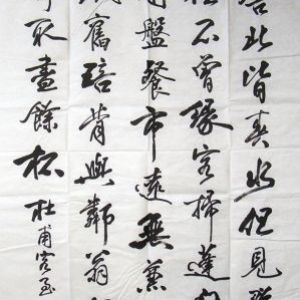 舍北皆春水但見群
徑不曾緣客掃蓬門
開盤餐市遠無兼
舊醅肯與鄰翁相
呼取盡餘杯杜甫客至